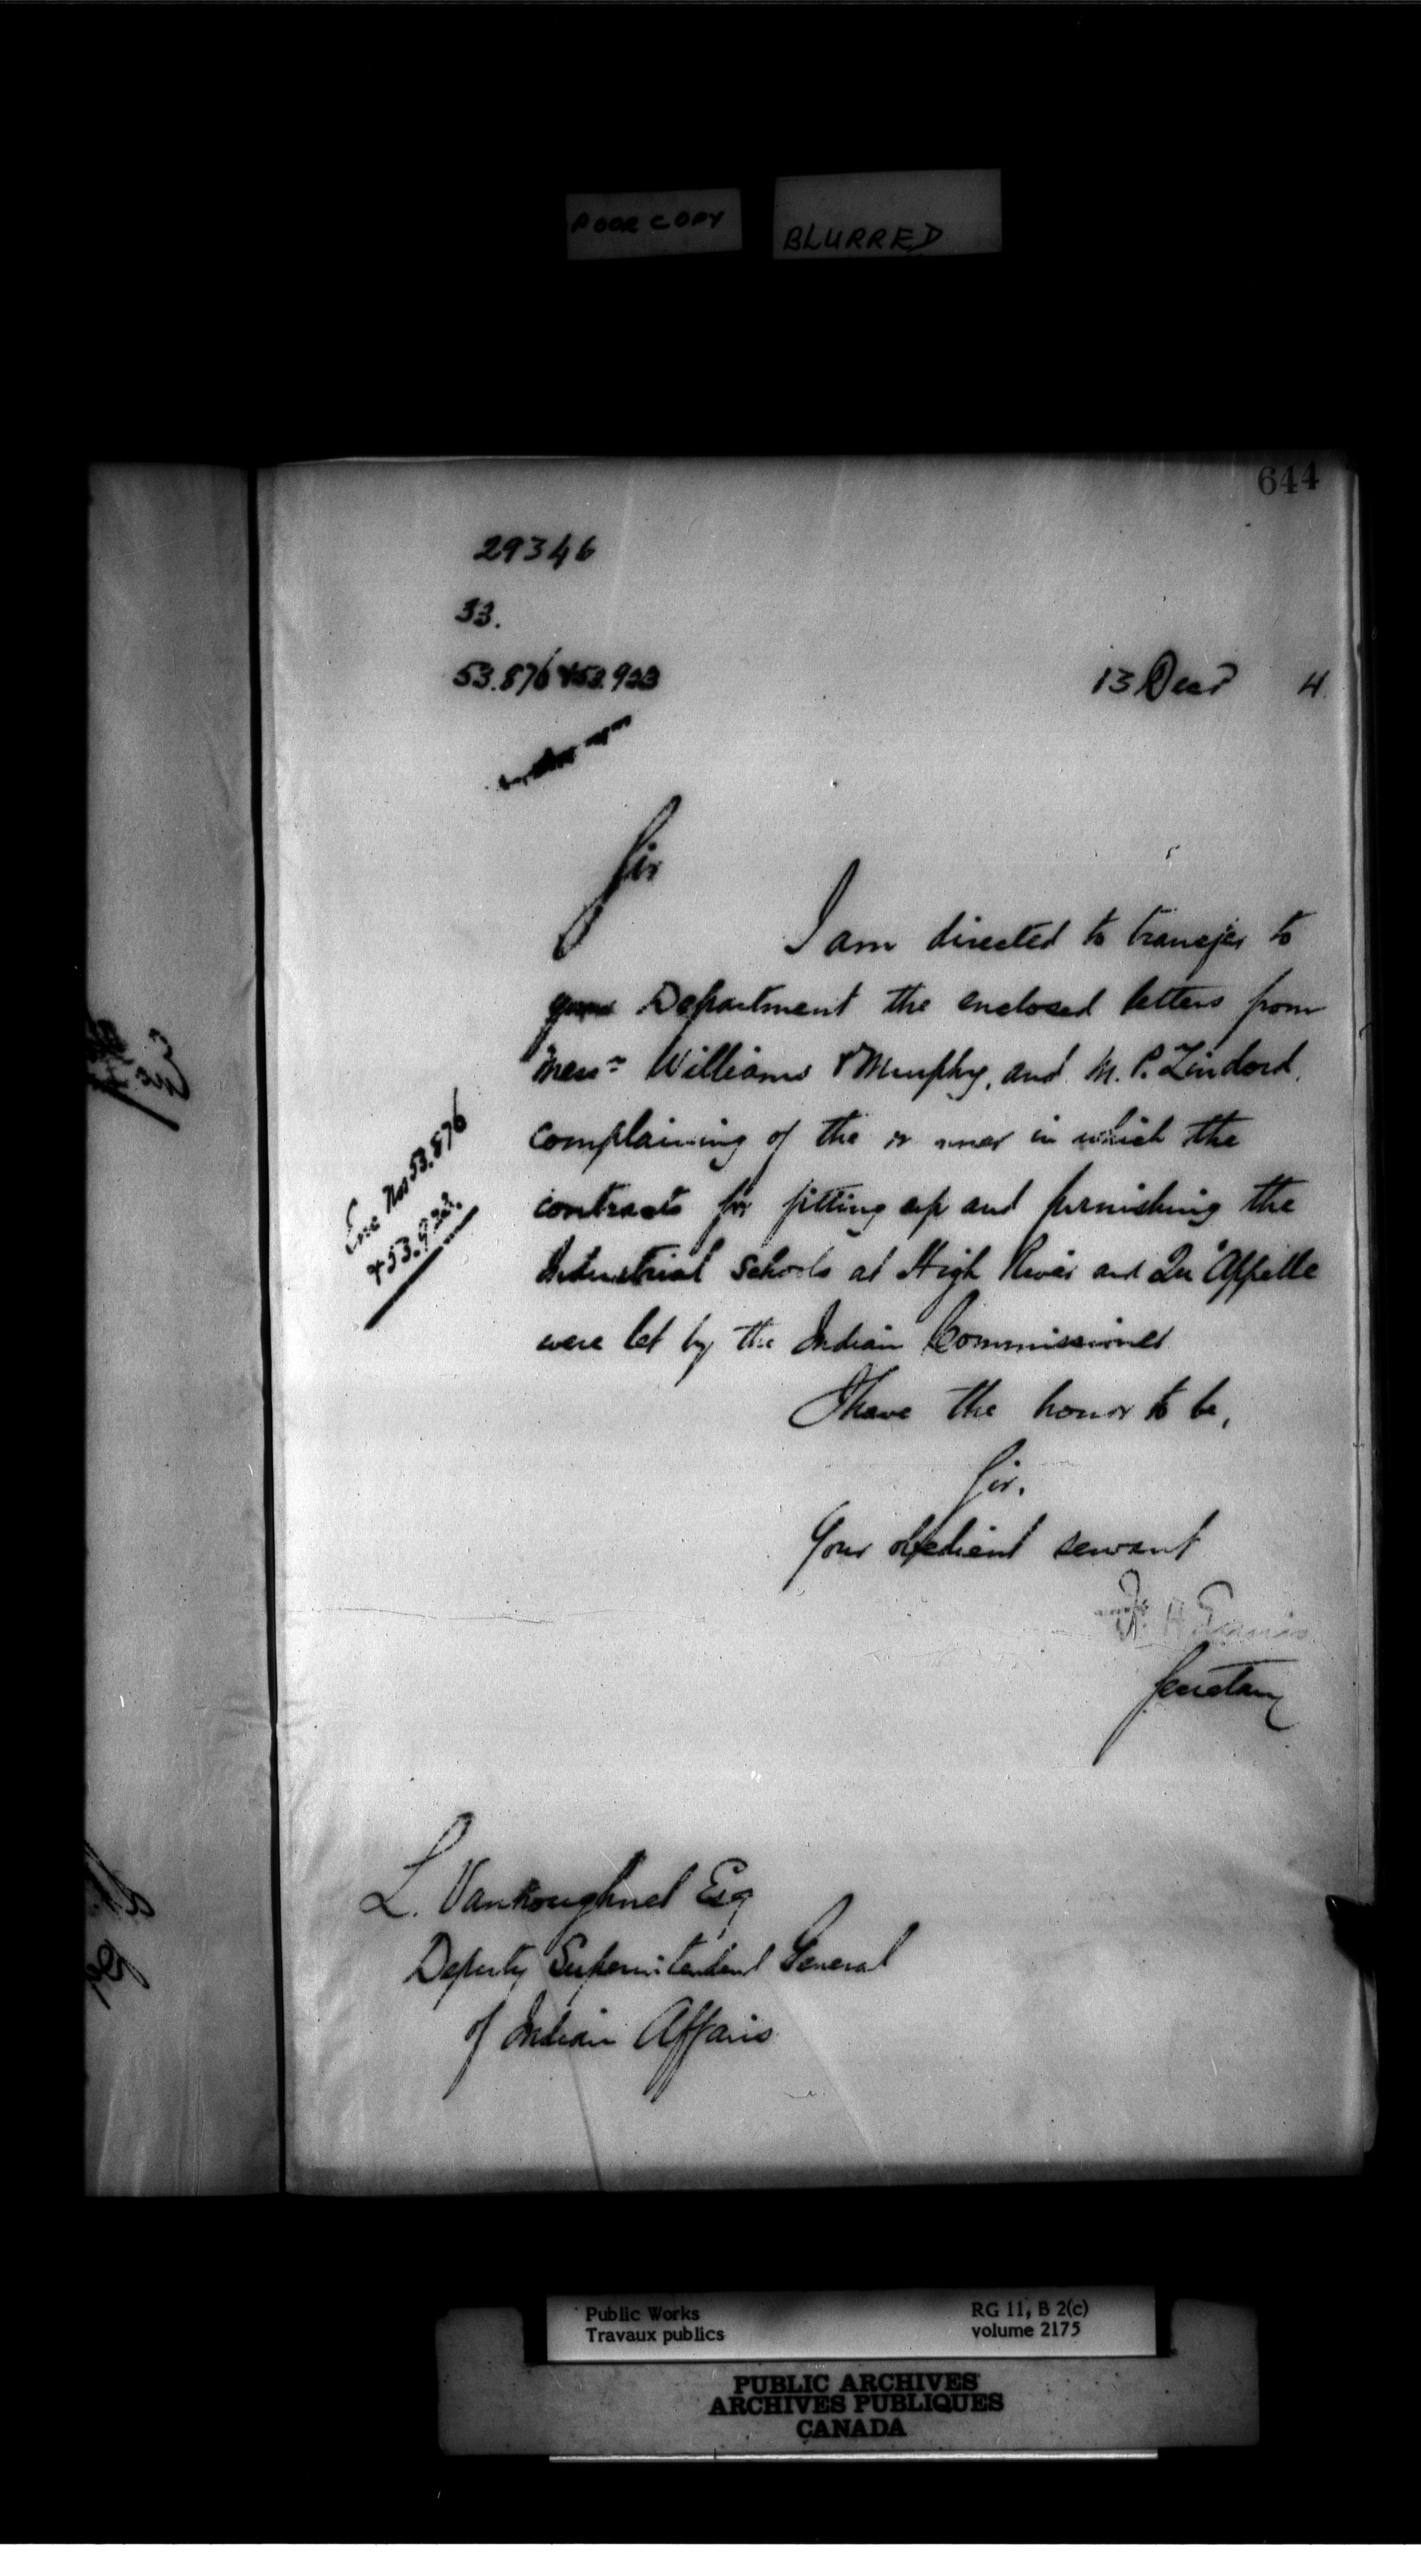 POOR COPY
BLURRED
644
29346
33.
53.876 & 53.923
13 Decr 4
Sir
I am directed to transfer to
your Department the enclosed letters from
Messrs Williams & Murphy, and M. P.
complaining of the manner in which the
contracts for fitting up and furnishing the
Industrial Schools at High River and Qu'Appelle
were let by the Indian Commissioner
I have the honor to be,
Sir.
Your obedient servant
F. H. Ennis
Secretary
Enc Nos 53.876
& 53.923.
L. Vankoughnet Esq
Deputy Superintendent General
of Indian Affairs
Public Works
Travaux publics
RG 11, B 2(c)
volume 2175
PUBLIC ARCHIVES
ARCHIVES PUBLIQUES
CANADA